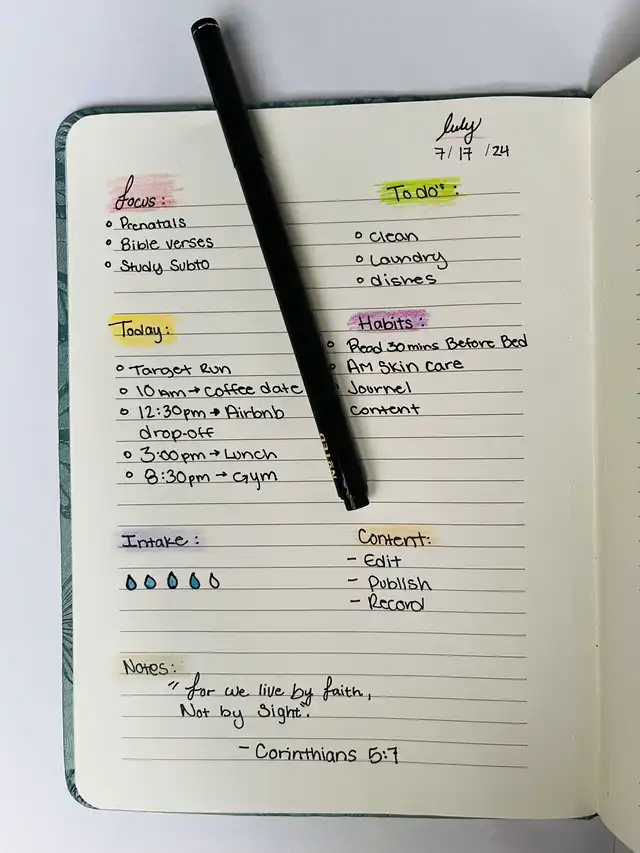 July
7/17/24
focus:
Prenatals
Bible verses
Study Subto
To do:
Clean
Laundry
dishes
Today:
Target Run
10am → Coffee date
12:30pm → Airbnb
drop-off
3:00pm → Lunch
8:30pm → Gym
Habits:
Read 30 mins Before Bed
AM Skin care
Journel
content
Intake:
Content:
- Edit
- Publish
- Record
Notes:
"for we live by faith,
Not by Sight".
- Corinthians 5:7